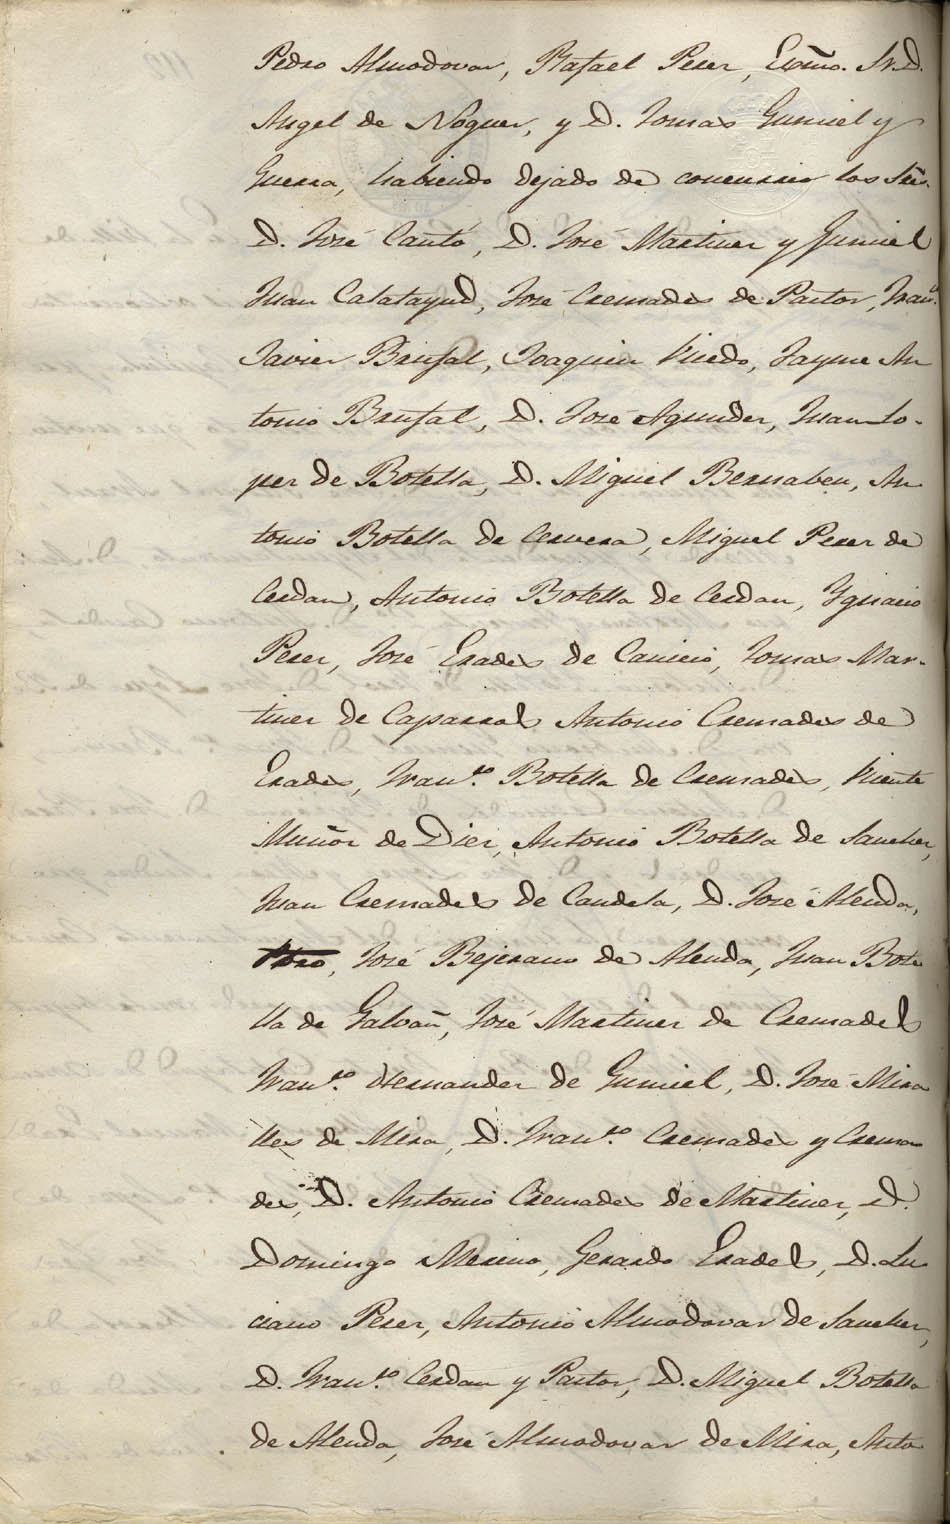 Pedro Almodovar, Rafael Perez, Exmo. Sr. D.
Angel de Noguer, y D. Tomas Gumiel y
Guerra, habiendo dejado de concurrir los Sres.
D. José Cantó, D. José Martinez y Gumiel
Juan Calatayud, José Cremades de Pastor, Fran.co
Javier Brufal, Joaquin Vicedo, Jayme An
tonio Brufal, D. José Aznudez, Juan Lo-
pez de Botella, D. Miguel Bernabeu, An
tonio Botella de Cervera, Miguel Perez de
Cerdan, Antonio Botella de Cerdan, Ygnacio
Perez, José Erades de Canicio, Tomas Mar-
tinez de Caparros Antonio Cremades de
Erades, Fran.co Botella de Cremades, Vicente
Muñoz de Diez, Antonio Botella de Sanchez,
Juan Cremades de Candela, D. José Alenda,
José Bejerano de Alenda, Juan Bote
lla de Galvañ, José Martinez de Cremades
Fran.co Hernandez de Gumiel, D. José Mira
lles de Mira, D. Fran.co Cremades y Crema
des, D. Antonio Cremades de Martinez, D.
Domingo Merino, Gerardo Erades, D. Lu
ciano Perez, Antonio Almodovar de Sanchez,
D. Fran.co Cerdan y Pastor, D. Miguel Botella
de Alenda, José Almodovar de Mira, Anto